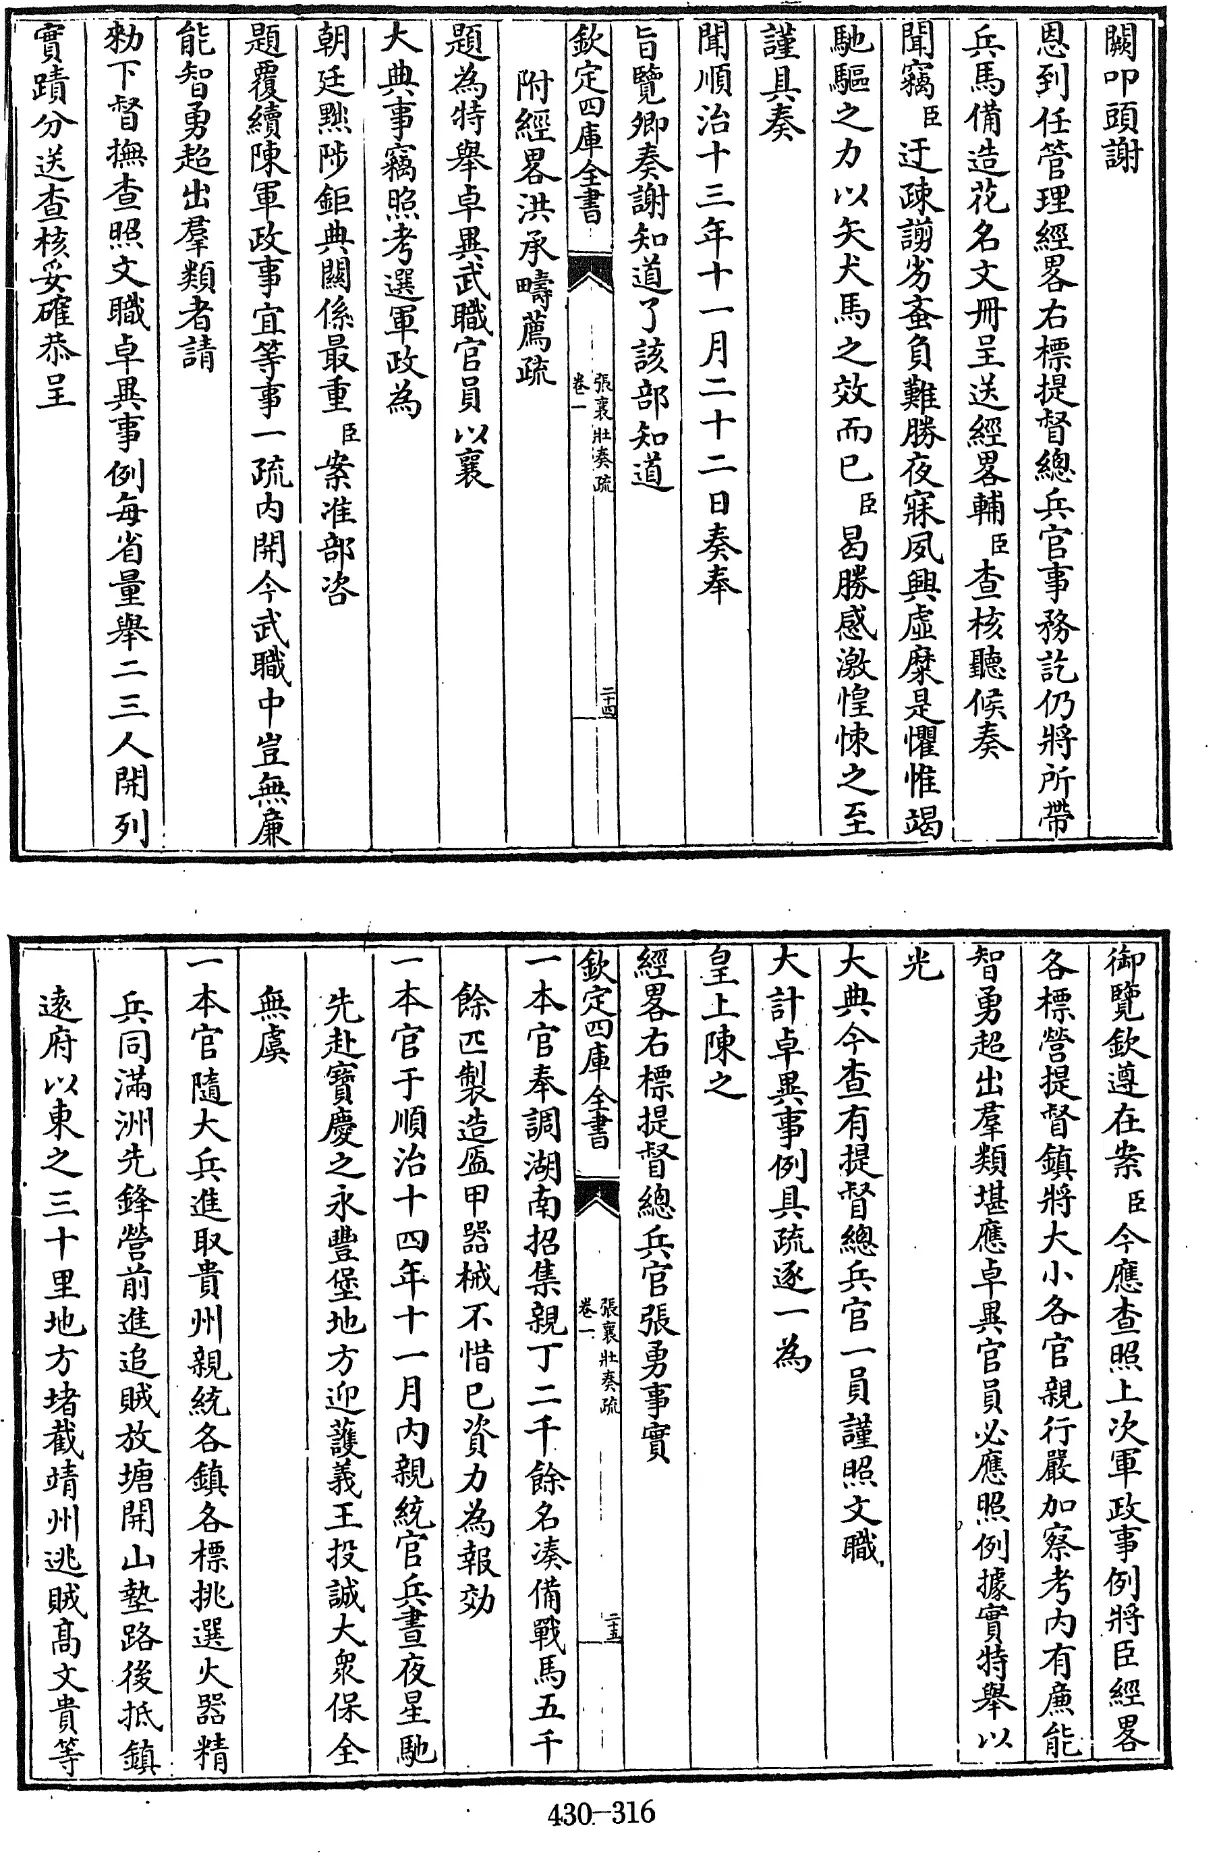 闕叩頭謝
恩到任管理經畧右標提督總兵官事務訖仍將所帶
兵馬備造花名文冊呈送經畧輔臣查核聽候奏
聞竊臣迂疎謭劣蚉負難勝夜寐夙興虛糜是懼惟竭
馳驅之力以矢犬馬之效而已臣曷勝感激惶悚之至
謹具奏
聞順治十三年十一月二十二日奏奉
旨覽卿奏謝知道了該部知道
欽定四庫全書
張襄壯奏疏
卷一
二十四
附經畧洪承疇薦疏
題為特舉卓異武職官員以襄
大典事竊照考選軍政為
朝廷黜陟鉅典關係最重臣案准部咨
題覆續陳軍政事宜等事一疏内開今武職中豈無廉
能智勇超出羣類者請
勅下督撫查照文職卓異事例每省量舉二三人開列
實蹟分送查核妥確恭呈
御覽欽遵在案臣今應查照上次軍政事例將臣經畧
各標營提督鎮將大小各官親行嚴加察考内有廉能
智勇超出羣類堪應卓異官員必應照例據實特舉以
光
大典今查有提督總兵官一員謹照文職
大計卓異事例具疏逐一為
皇上陳之
經畧右標提督總兵官張勇事實
欽定四庫全書
張襄壯奏疏
卷一
二十五
一本官奉調湖南招集親丁二千餘名凑備戰馬五千
餘匹製造盔甲器械不惜已資力為報効
一本官于順治十四年十一月内親統官兵晝夜星馳
先赴寶慶之永豐堡地方迎護義王投誠大衆保全
無虞
一本官隨大兵進取貴州親統各鎮各標挑選火器精
兵同滿洲先鋒營前進追賊放塘開山墊路後抵鎮
遠府以東之三十里地方堵截靖州逃賊髙文貴等
430-316